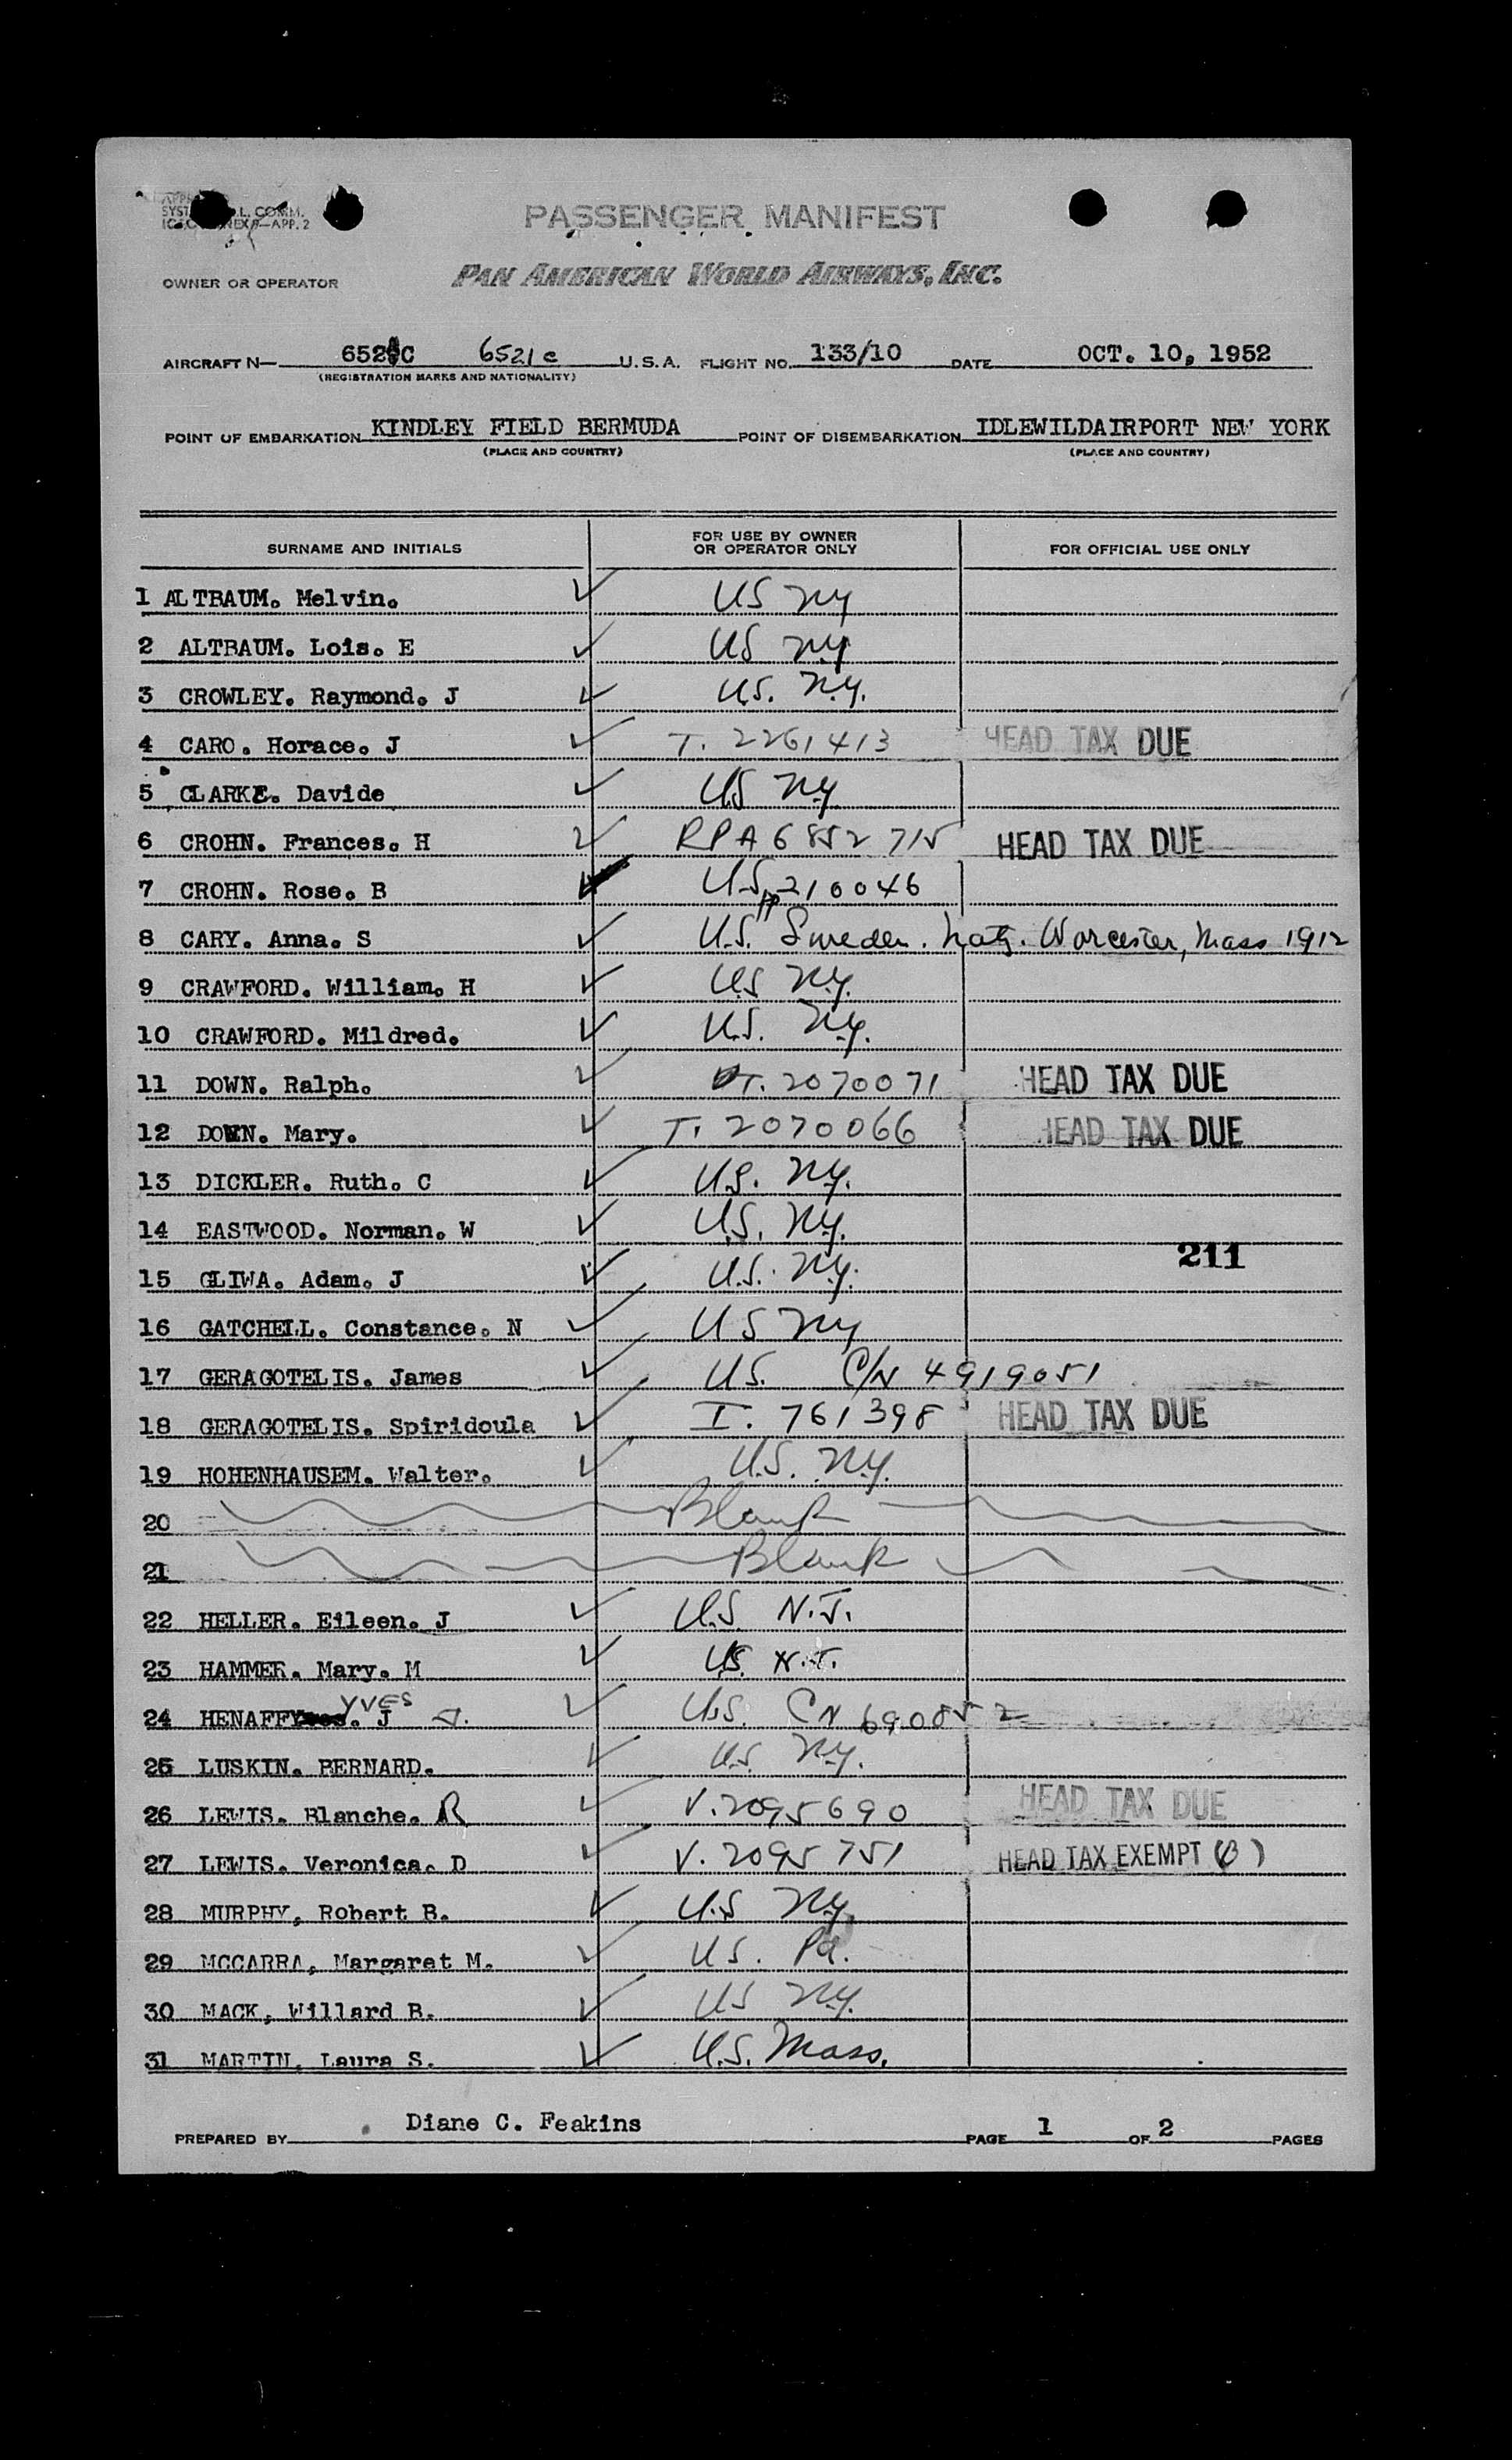 L. COMM.
APP. 2
PASSENGER MANIFEST
OWNER OR OPERATOR PAN AMERICAN WORLD AIRWAYS, INC.
AIRCRAFT N— 6521c U.S.A. FLIGHT NO. 133/10 DATE OCT. 10, 1952
(REGISTRATION MARKS AND NATIONALITY)
POINT OF EMBARKATION KINDLEY FIELD BERMUDA POINT OF DISEMBARKATION IDLEWILDAIRPORT NEW YORK
(PLACE AND COUNTRY) (PLACE AND COUNTRY)
SURNAME AND INITIALS FOR USE BY OWNER OR OPERATOR ONLY FOR OFFICIAL USE ONLY
1 ALTBAUM. Melvin. ✓ US NY
2 ALTBAUM. Lois. E ✓ US N.Y.
3 CROWLEY. Raymond. J ✓ U.S. N.Y.
4 CARO. Horace. J ✓ T. 2261413 HEAD TAX DUE
5 CLARKE. Davide ✓ US N.Y
6 CROHN. Frances. H ✓ RPA 6852715 HEAD TAX DUE
7 CROHN. Rose. B ✓ U.S. pp 210046
8 CARY. Anna. S ✓ U.S. Sweden. Natz. Worcester, Mass 1912
9 CRAWFORD. William. H ✓ U.S N.Y.
10 CRAWFORD. Mildred. ✓ U.S. N.Y.
11 DOWN. Ralph. ✓ T. 2070071 HEAD TAX DUE
12 DOWN. Mary. ✓ T. 2070066 HEAD TAX DUE
13 DICKLER. Ruth. C ✓ U.S. N.Y.
14 EASTWOOD. Norman. W ✓ U.S. N.Y.
211
15 GLIWA. Adam. J ✓ U.S. N.Y.
16 GATCHELL. Constance. N ✓ US NY
17 GERAGOTELIS. James ✓ U.S. C/N 4919051
18 GERAGOTELIS. Spiridoula ✓ I. 761398 HEAD TAX DUE
19 HOHENHAUSEM. Walter. ✓ U.S. N.Y.
20 Blank
21 Blank
22 HELLER. Eileen. J ✓ U.S N.J.
23 HAMMER. Mary. M ✓ US. N.J.
24 HENAFF YVES J. ✓ U.S. CN 690852
25 LUSKIN. BERNARD. ✓ U.S N.Y.
26 LEWIS. Blanche. R ✓ V. 2095690 HEAD TAX DUE
27 LEWIS. Veronica. D ✓ V. 2095751 HEAD TAX EXEMPT (B)
28 MURPHY, Robert B. ✓ U.S N.Y.
29 MCCARRA, Margaret M. ✓ U.S. Pa.
30 MACK, Willard B. ✓ US N.Y.
31 MARTIN, Laura S. ✓ U.S. Mass.
PREPARED BY Diane C. Feakins PAGE 1 OF 2 PAGES